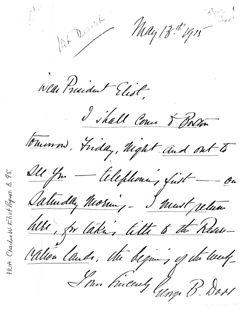 May 13th 1915
Dear President Eliot,
I shall come to Boston
tomorrow, Friday, night and out to
see you — telephoning first — on
Saturday morning. I must return
here, for taking title to the Reser-
vation lands, the beginning of the week.
Yours sincerely
George B. Dorr
HUA Charles W. Eliot Papers b. 95